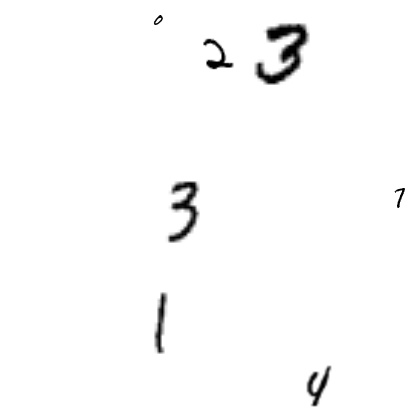 0
2 3
3 7
1
4